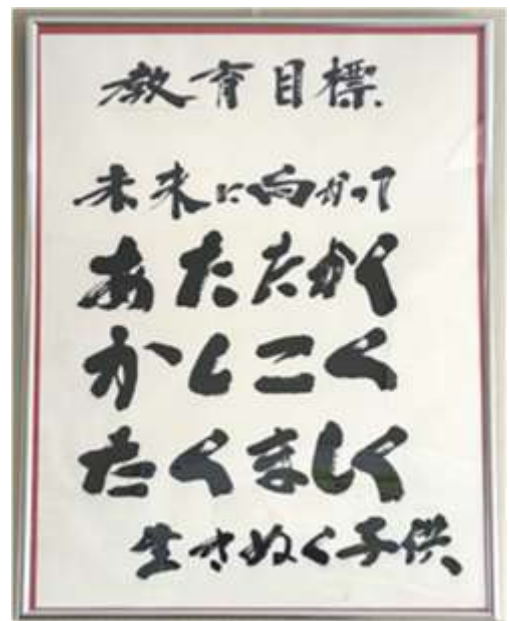 教育目標
未来に向かって
あたたかく
かしこく
たくましく
生きぬく子供